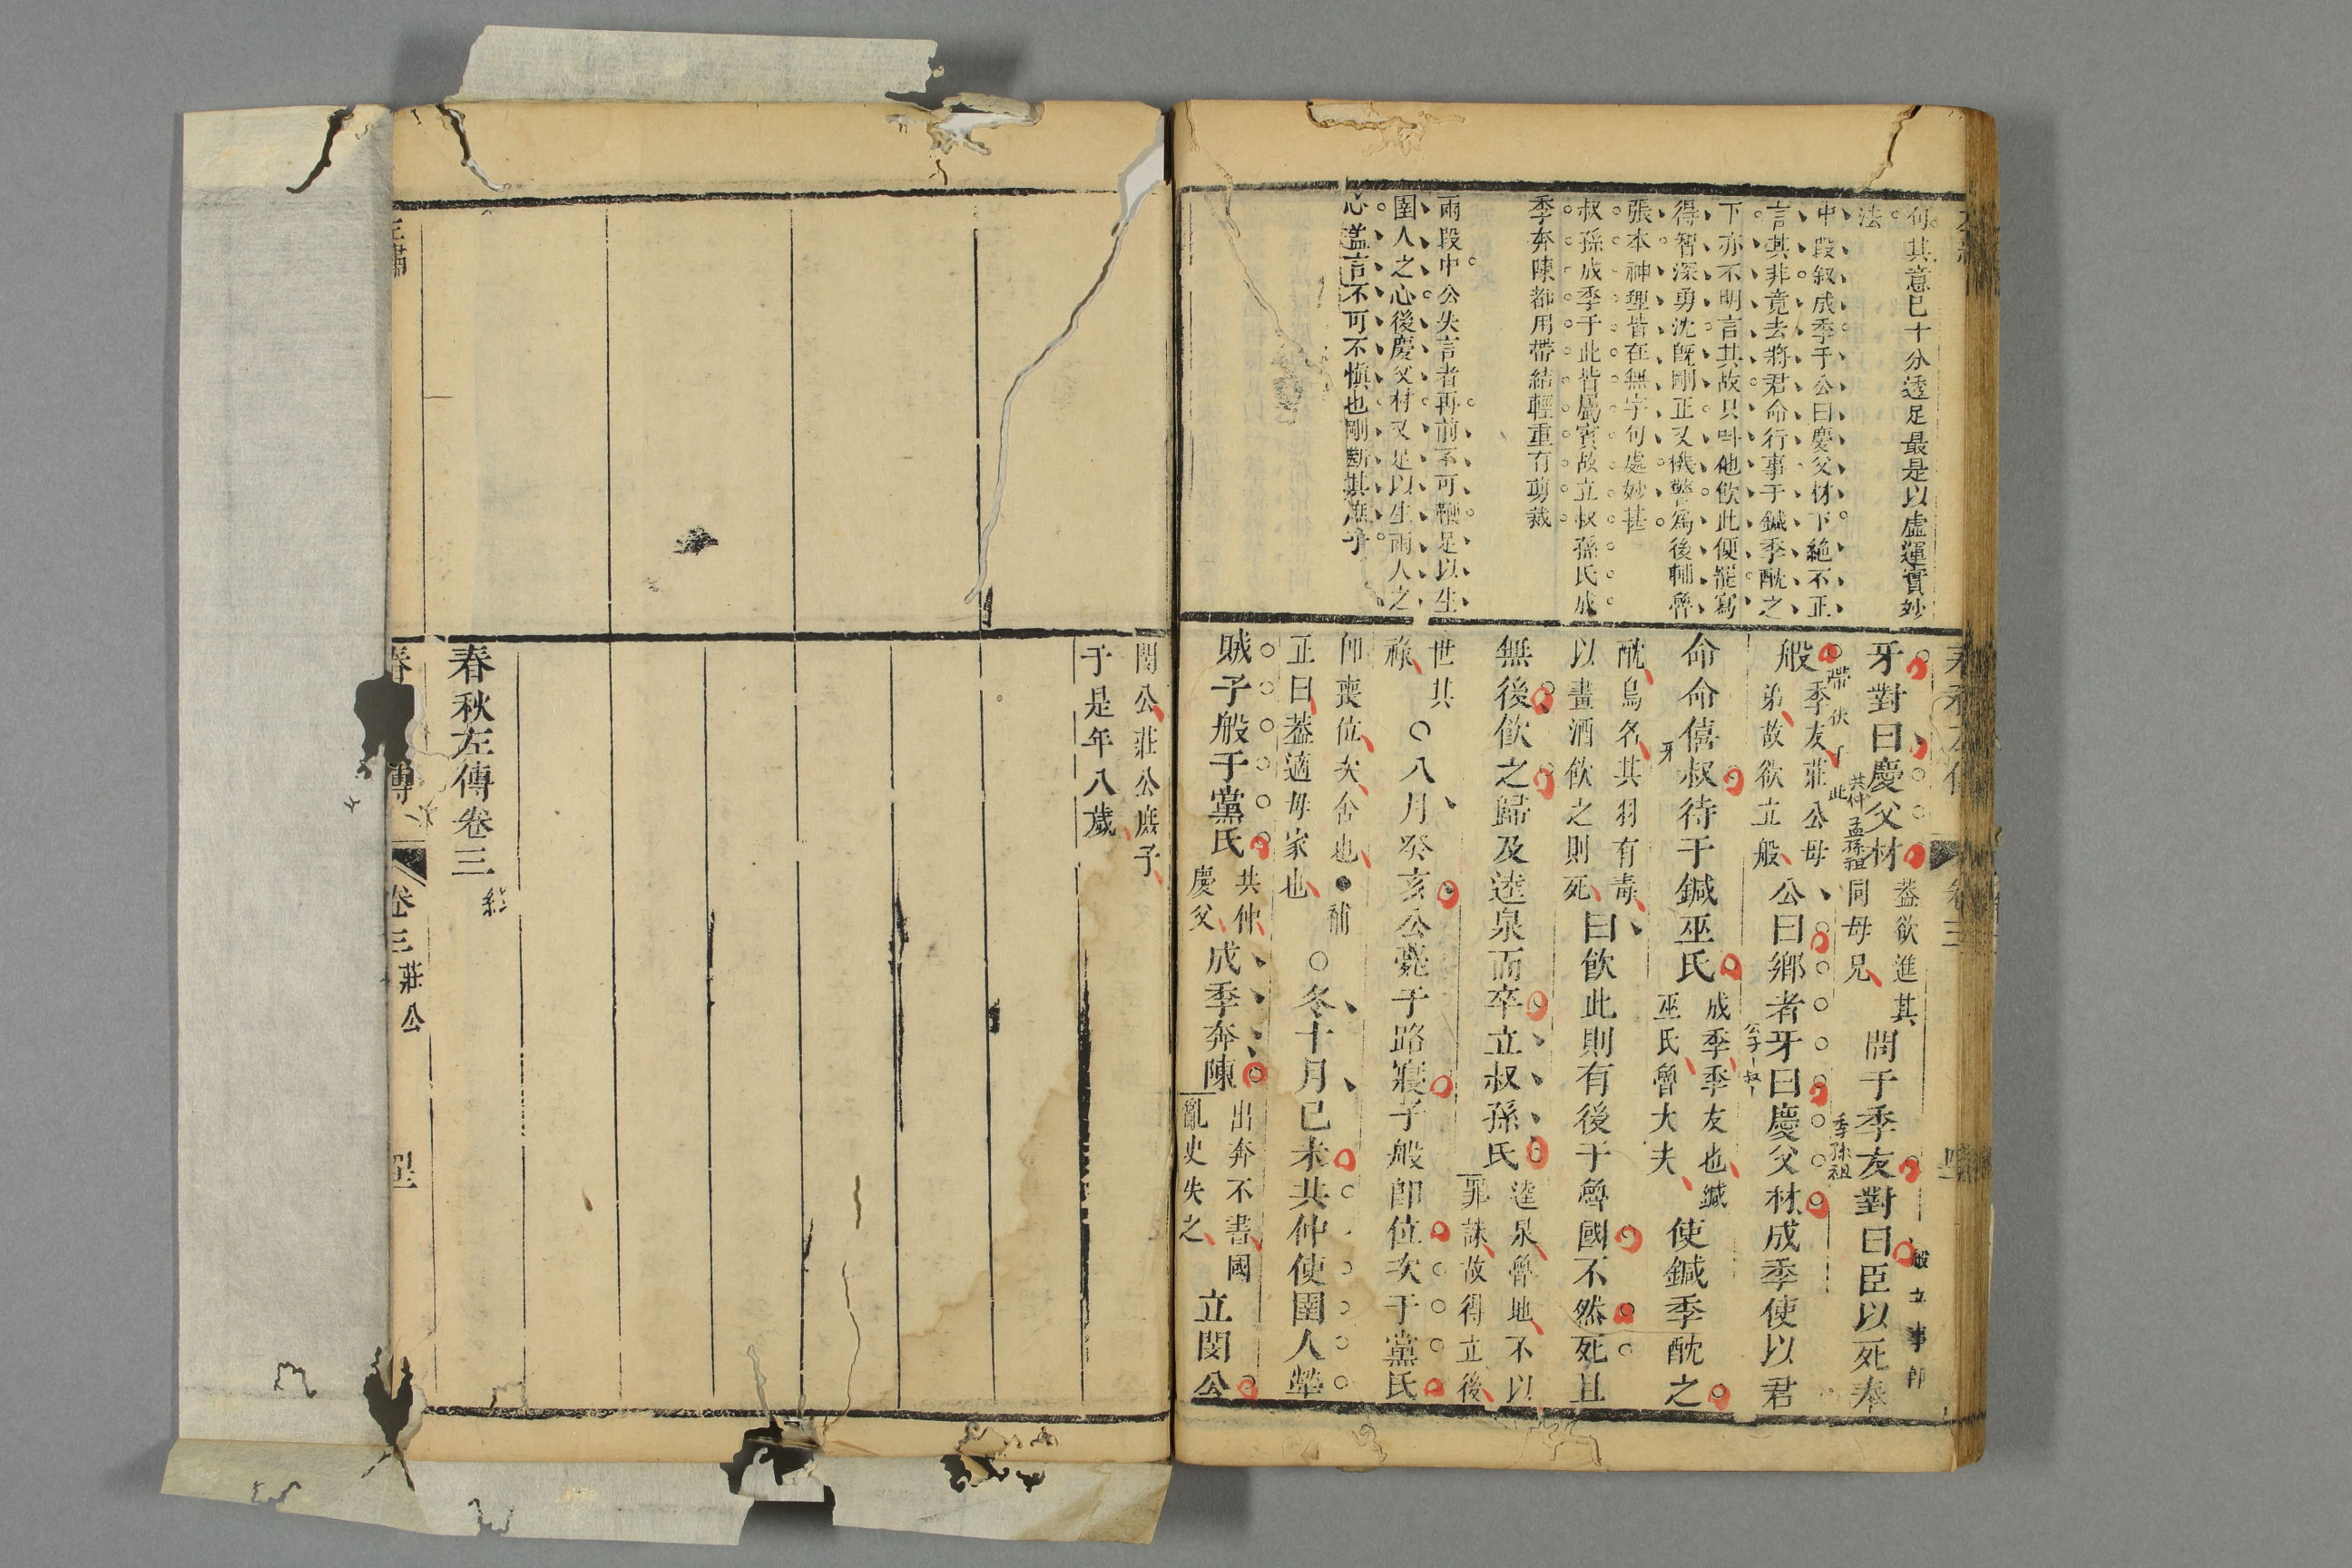 句其意已十分透足最是以虛運實妙
法
中段叙成季于公曰慶父材下絶不正
言其非竟去將君命行事于鍼季酖之
下亦不明言其故只叫他飲此便罷寫
得智深勇沈旣剛正又機警爲後輔魯
張本神理皆在無字句處妙甚
叔孫成季于此皆屬賓故立叔孫氏成
季奔陳都用帶結輕重有剪裁
兩段中公失言者再前不可鞭是以生
圉人之心後慶父材又是以生兩人之
心溢言不可不愼也剛斷其庶乎
牙對曰慶父材
蓋欲進其
同母兄
問于季友對曰臣以死奉
般
季友莊公母
弟故欲立般
公曰鄉者牙曰慶父材成季使以君
命命僖叔待于鍼巫氏
成季季友也鍼
巫氏魯大夫
使鍼季酖之
酖鳥名其羽有毒
以畫酒飲之則死
曰飲此則有後于魯國不然死且
無後飲之歸及逵泉而卒立叔孫氏
逵泉魯地不以
罪誅故得立後
世其
祿
○八月癸亥公薨于路寢子般卽位次于黨氏
卽喪位次舍也●補
正曰蓋適母家也
○冬十月己未共仲使圉人犖
賊子般于黨氏
共仲
慶父
成季奔陳
出奔不書國
亂史失之
立閔公
孟孫祖
季孫祖
牙
閔公莊公庶子
于是年八歲
春秋左傳卷三
終
卷三
莊公